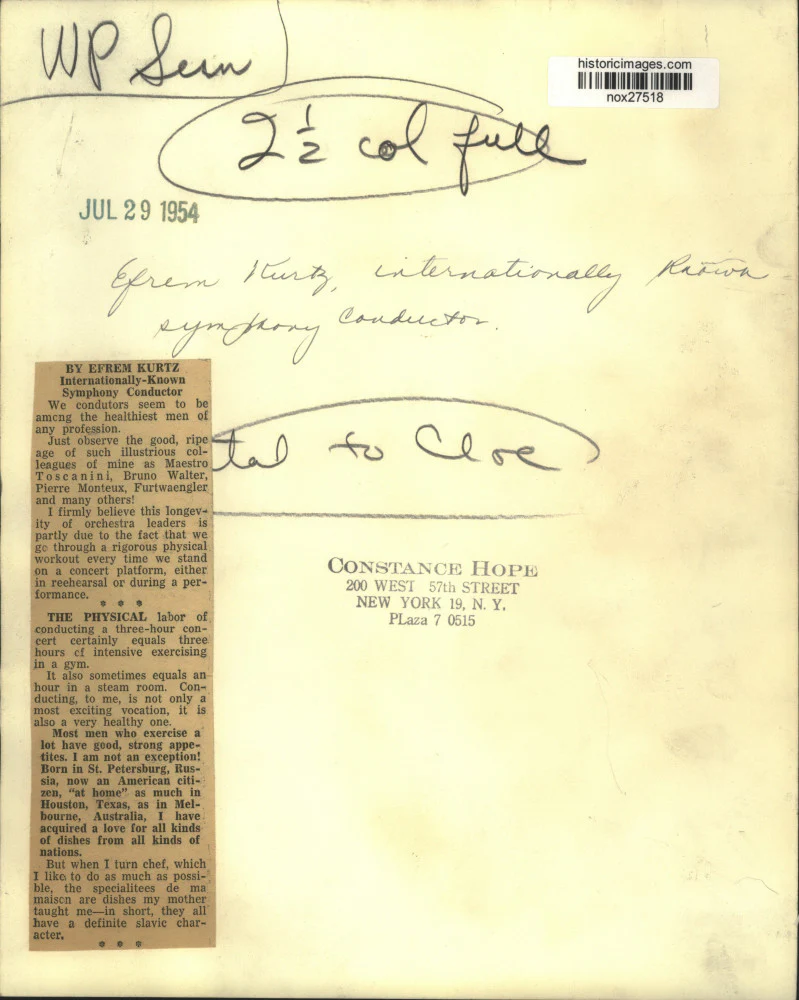 WP Sun
historicimages.com
nox27518
2 1/2 col full
JUL 29 1954
Efrem Kurtz, internationally known
symphony conductor.
BY EFREM KURTZ
Internationally-Known
Symphony Conductor
We condutors seem to be
among the healthiest men of
any profession.
Just observe the good, ripe
age of such illustrious col-
leagues of mine as Maestro
Toscanini, Bruno Walter,
Pierre Monteux, Furtwaengler
and many others!
I firmly believe this longev-
ity of orchestra leaders is
partly due to the fact that we
go through a rigorous physical
workout every time we stand
on a concert platform, either
in reehearsal or during a per-
formance.
* * *
THE PHYSICAL labor of
conducting a three-hour con-
cert certainly equals three
hours of intensive exercising
in a gym.
It also sometimes equals an
hour in a steam room. Con-
ducting, to me, is not only a
most exciting vocation, it is
also a very healthy one.
Most men who exercise a
lot have good, strong appe-
tites. I am not an exception!
Born in St. Petersburg, Rus-
sia, now an American citi-
zen, "at home" as much in
Houston, Texas, as in Mel-
bourne, Australia, I have
acquired a love for all kinds
of dishes from all kinds of
nations.
But when I turn chef, which
I like to do as much as possi-
ble, the specialitees de ma
maison are dishes my mother
taught me—in short, they all
have a definite slavic char-
acter.
* * *
tal to Cloe
CONSTANCE HOPE
200 WEST 57th STREET
NEW YORK 19, N. Y.
PLaza 7 0515